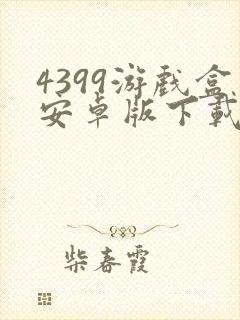 4399游戏盒
安卓版下载
柴春霞